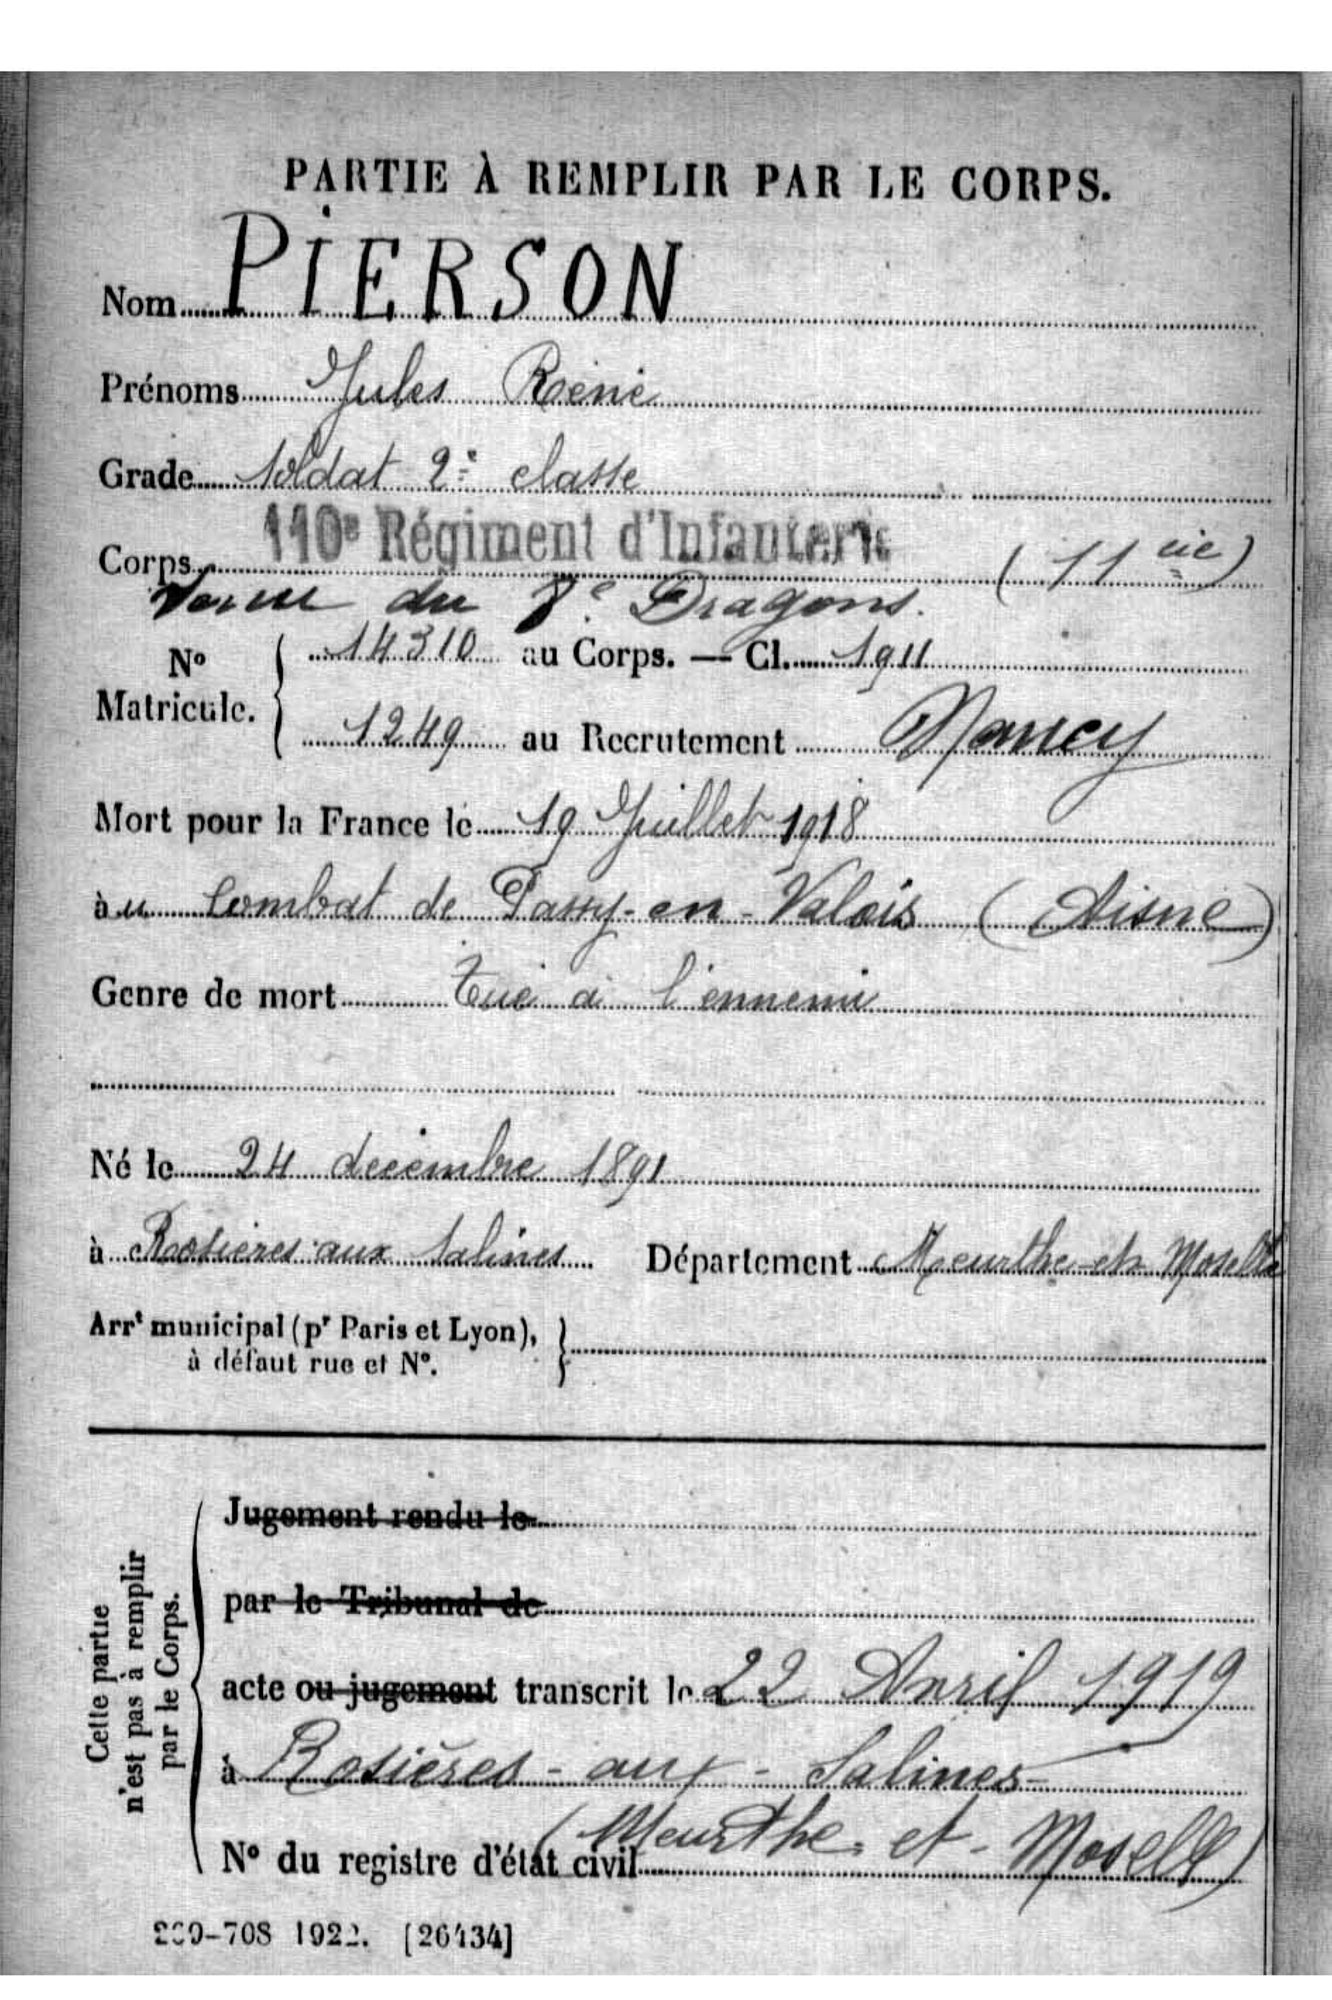 PARTIE À REMPLIR PAR LE CORPS.
Nom PIERSON
Prénoms Jules René
Grade Soldat 2e classe
Corps 110e Régiment d'Infanterie (11 cie)
Venu du 8e Dragons.
No Matricule. 14310 au Corps. — Cl. 1911
1249 au Recrutement Nancy
Mort pour la France le 19 Juillet 1918
àu Combat de Passy-en-Valois (Aisne)
Genre de mort Tué à l'ennemi
Né le 24 décembre 1891
à Rosières aux Salines Département Meurthe-et-Moselle
Arrt municipal (pr Paris et Lyon),
à défaut rue et No.
Cette partie
n'est pas à remplir
par le Corps.
Jugement rendu le
par le Tribunal de
acte ou jugement transcrit le 22 Avril 1919
à Rosières-aux-Salines
(Meurthe-et-Moselle)
No du registre d'état civil
-708 1922. [26434]